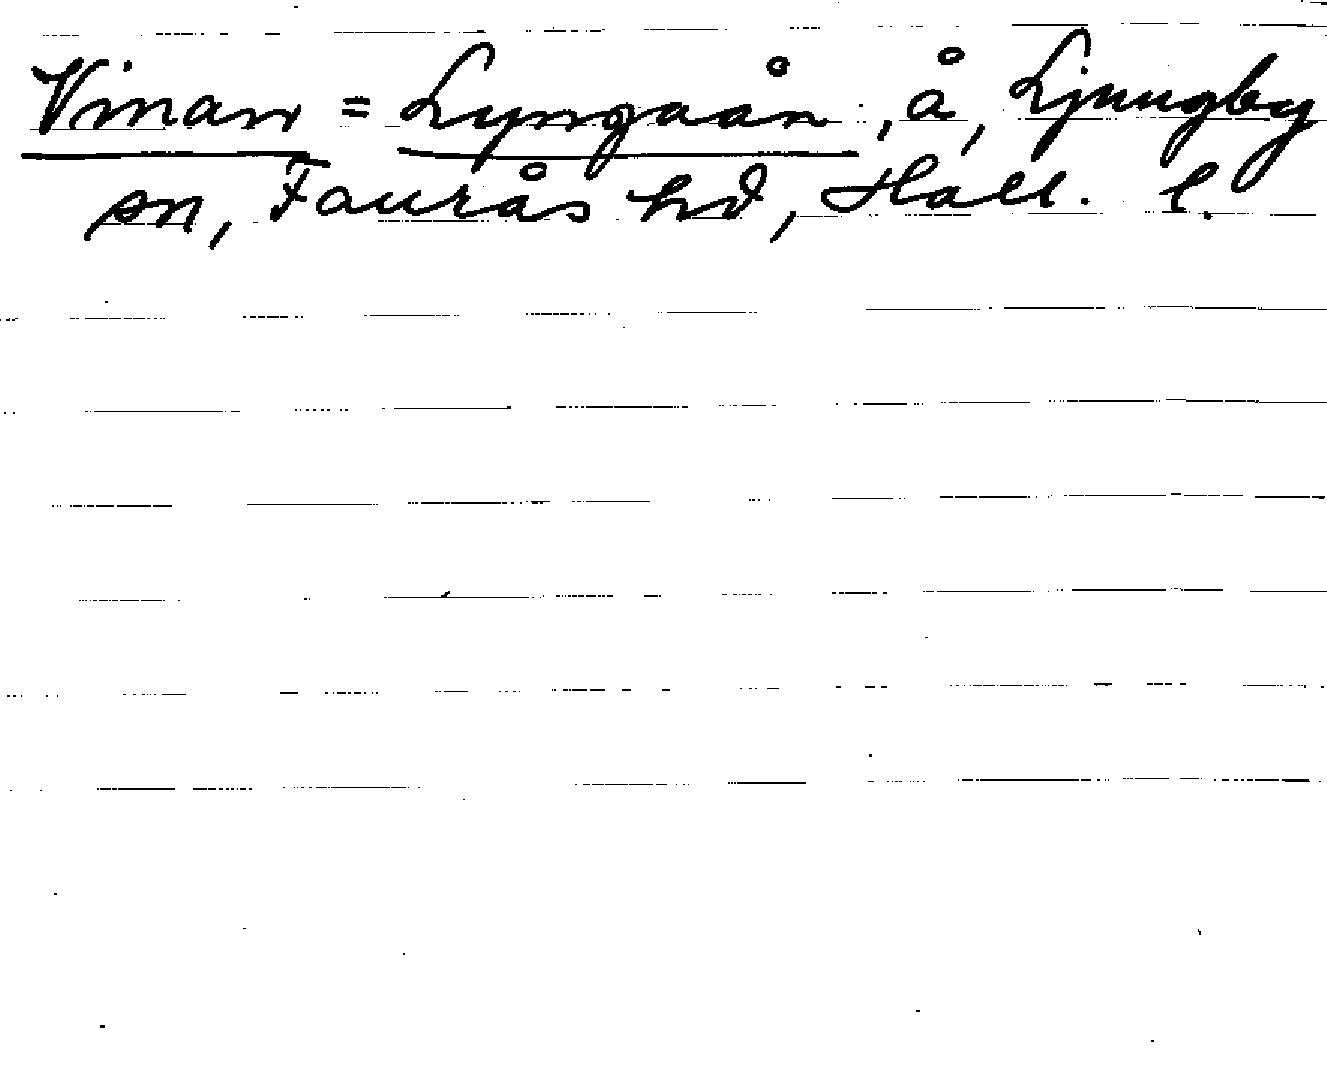 Vinan = Lyngaån, å, Ljungby
sn, Faurås hd, Hall. l.